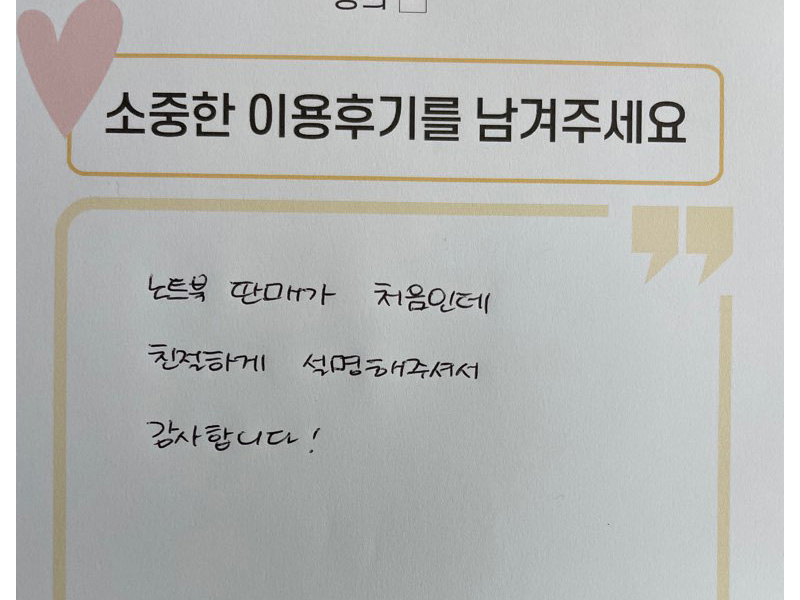 소중한 이용후기를 남겨주세요
노트북 판매가 처음인데
친절하게 설명해주셔서
감사합니다!